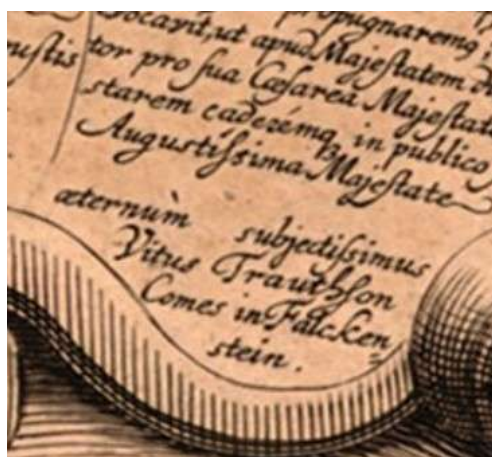 propugnaremq́;
vocavit, ut apud Majeſtatem
nuſtis tor pro ſua Cæſarea Majeſtat
starem cademq́ in publico
Auguſtiſsima Majeſtate
æternum subjectiſsimus
Vitus Trauthſon
Comes in Falcken
stein.